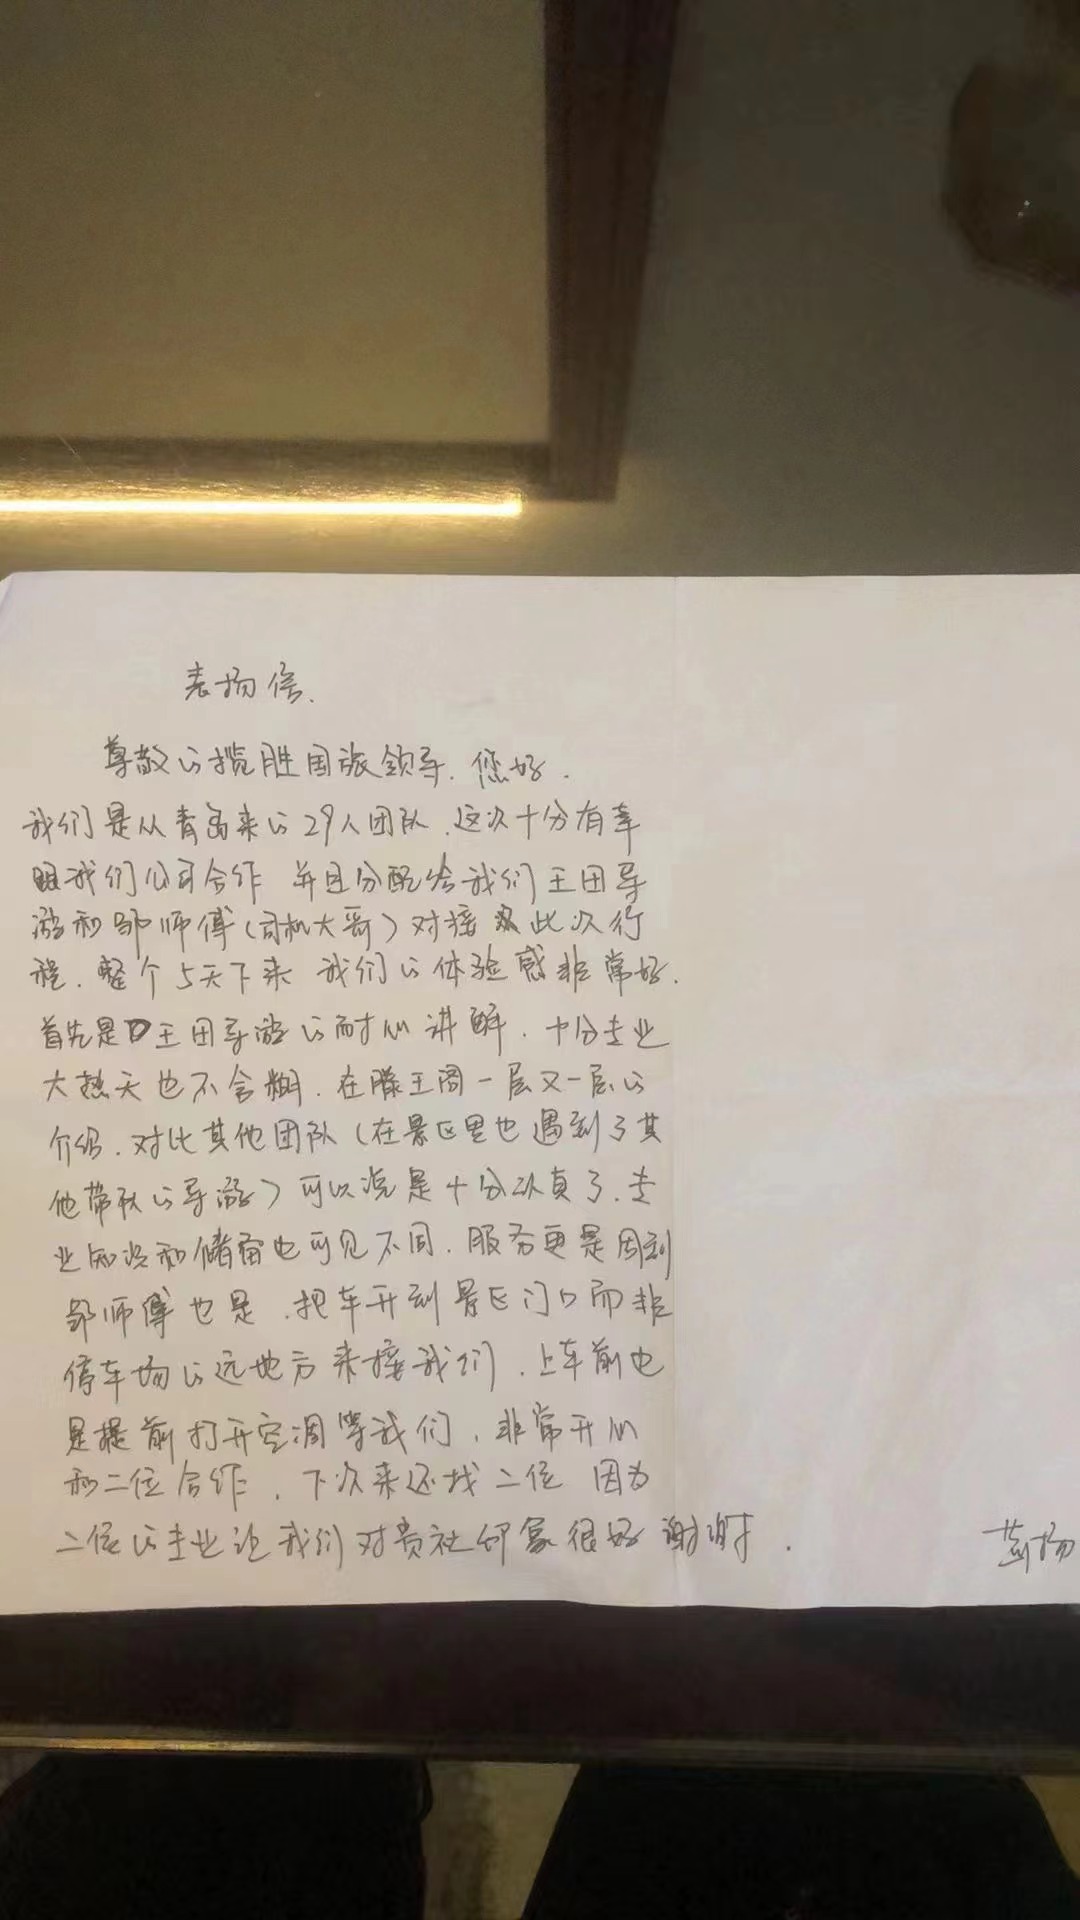 表扬信.
尊敬的揽胜国旅领导.您好.
我们是从青岛来的29人团队.这次十分有幸
跟我们公司合作 并且分配给我们王田导
游和邹师傅(司机大哥)对接 此次行
程.整个5天下来 我们的体验感非常好.
首先是 王田导游的耐心讲解.十分专业
大热天也不含糊.在滕王阁一层又一层的
介绍.对比其他团队(在景区里也遇到了其
他带队的导游)可以说是十分认真了.专
业知识和储备也可见不同.服务更是周到
邹师傅也是.把车开到景区门口而非
停车场的远地方来接我们.上车前也
是提前打开空调等我们.非常开心
和二位合作.下次来还找二位 因为
二位的专业让我们对贵社印象很好 谢谢.